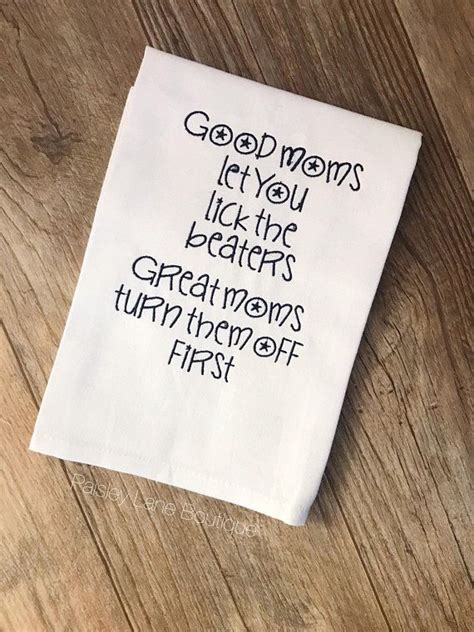 GOOD moms
let YOU
lick the
beaters
GReat moms
tuRn them OFF
FiRst
Paisley Lane Boutique